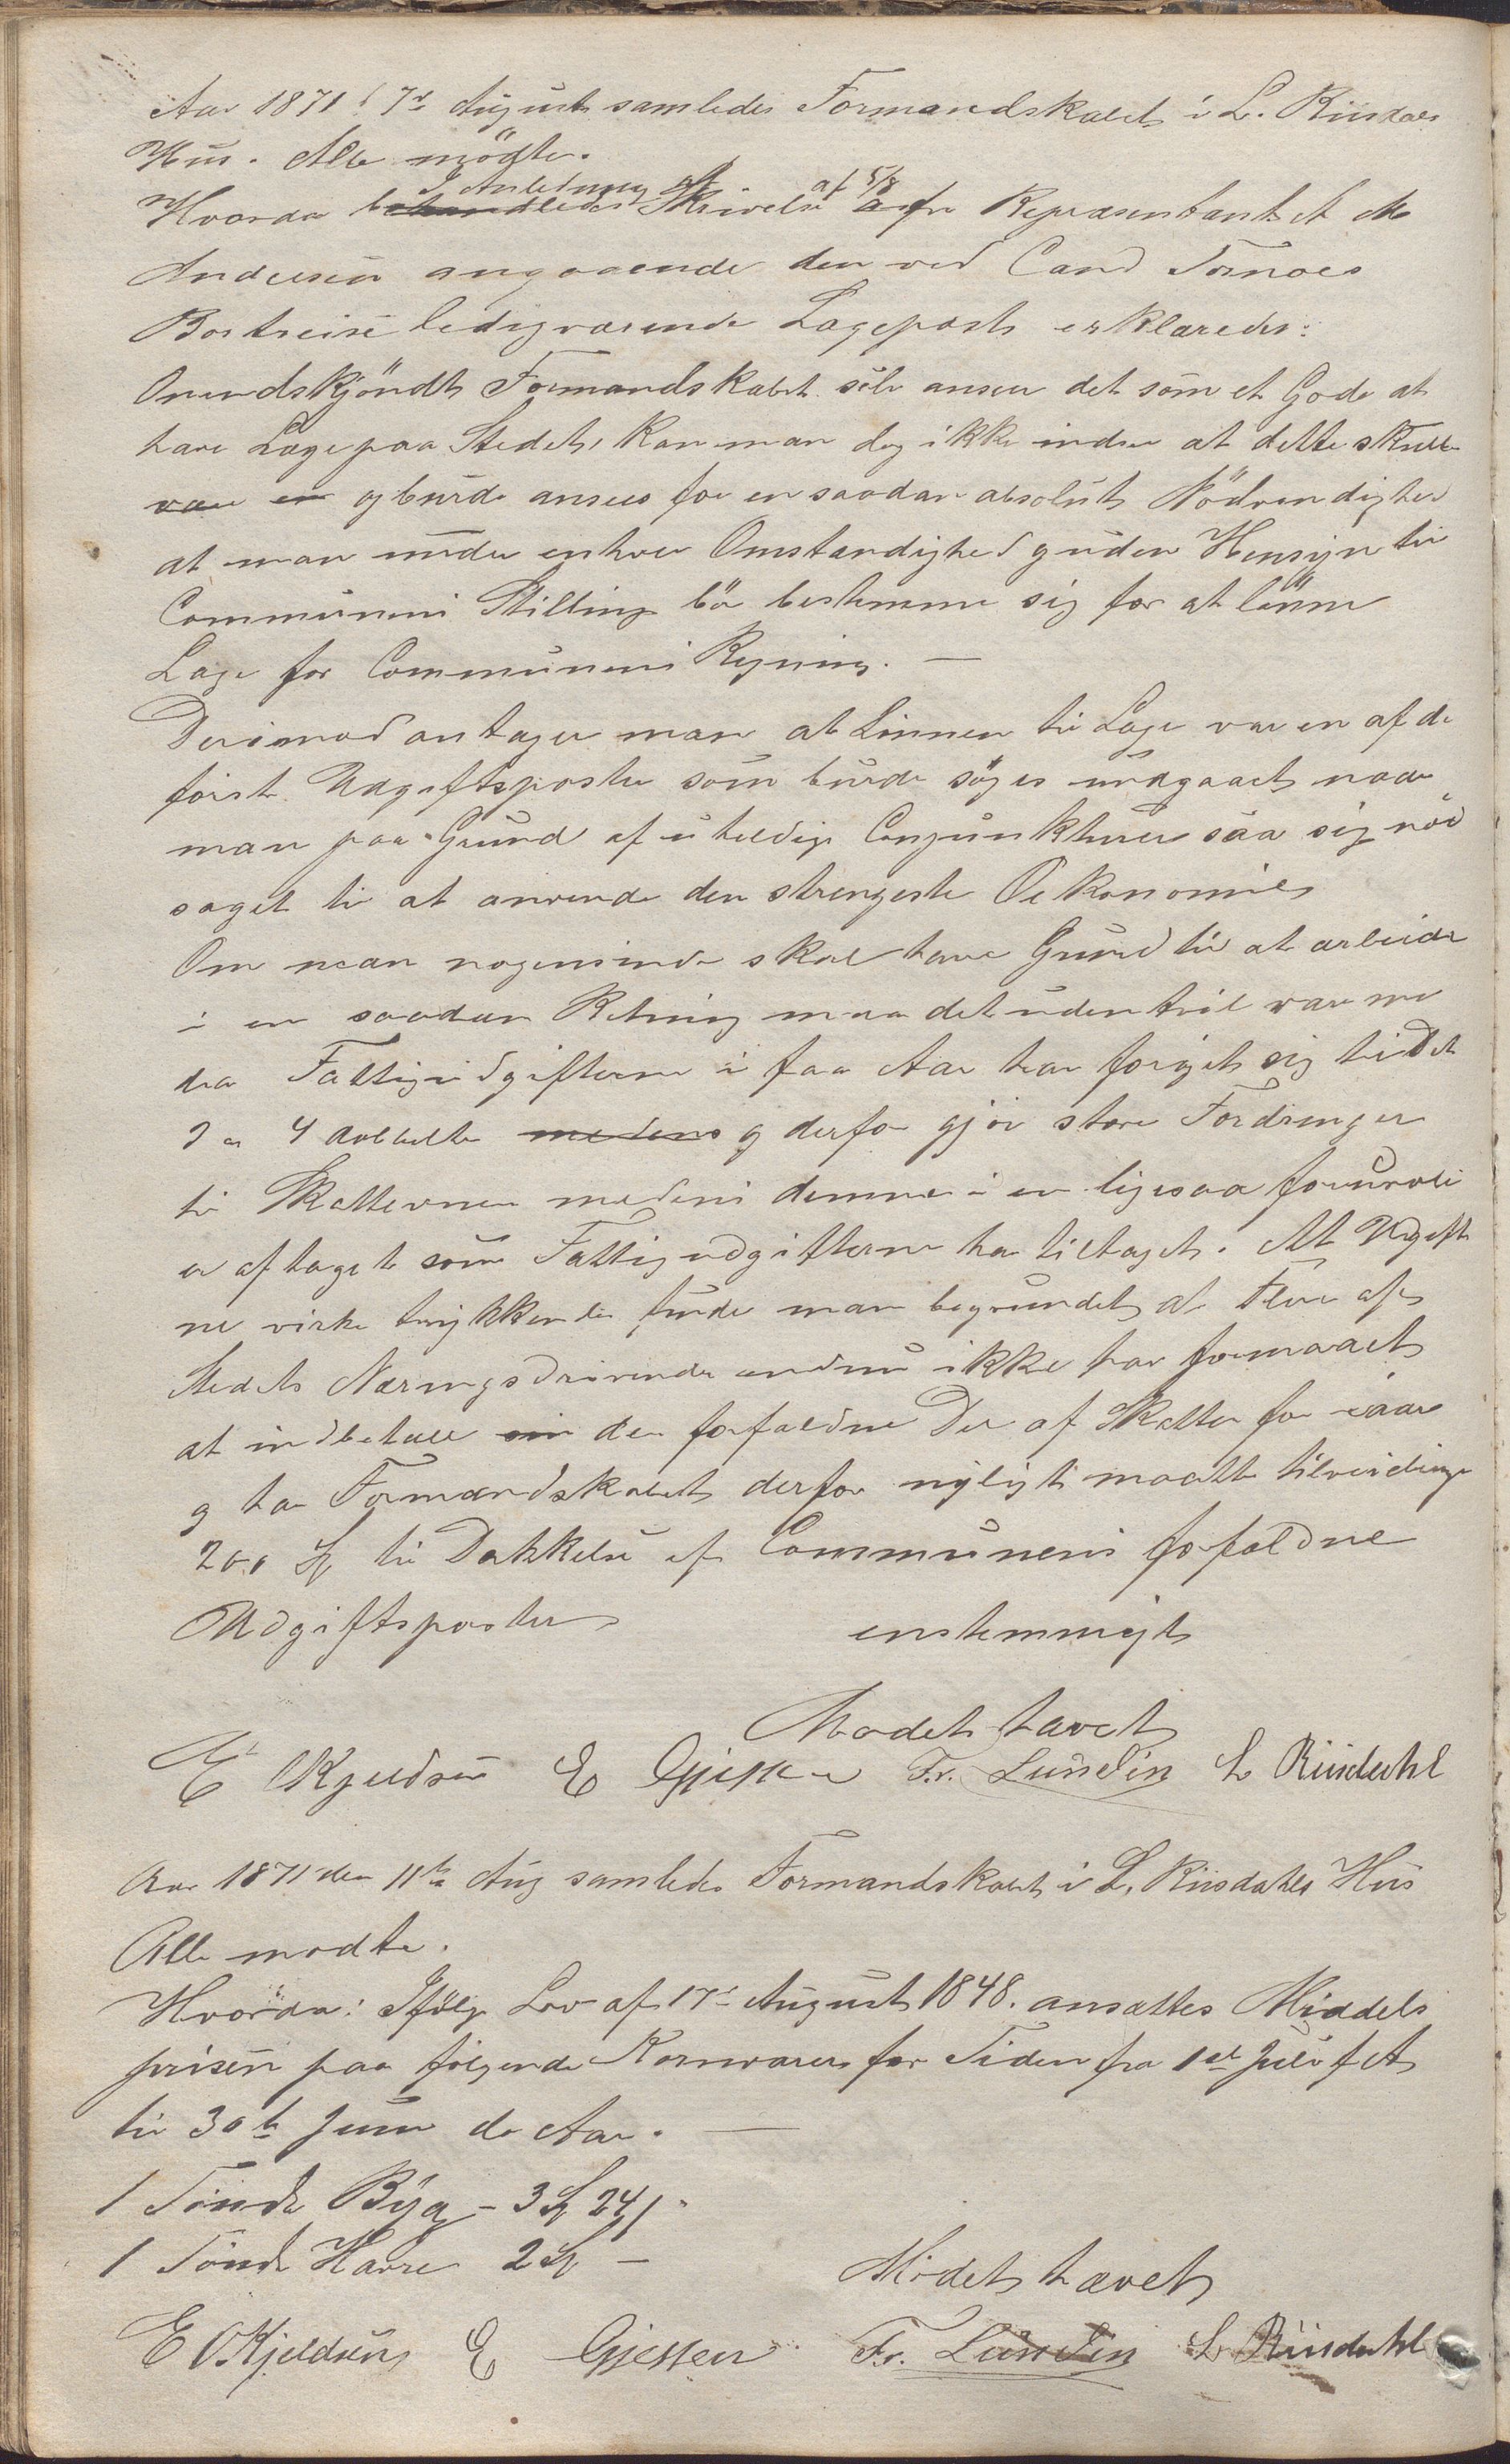 Aar 1871 d 7de August samledes Formandskabet i L. Riisdals
Hus. Alle mödte.
I Anledning af af 5/8
Hvorda behandledes Skrivelse fra Repræsentant A M
Andersen angaaende den ved Cand Tornoes
Bortreise ledigværende Lægepost erklæredes:
Omendskjöndt Formandskabet selv anseer det som et Gode at
have Læge paa Stedet, kan man dog ikke indsee at dette skulle
være en og burde ansees for en saadan absolut Nödvendighed
at man under enhver Omstændighed og uden Hensyn til
Communens Stilling bör bestemme sig for at lönne
Læge for Communens Regning. —
Derimod antager man at Lönnen til Læge var en af de
förste Udgiftsposter som burde söges undgaaet naar
man paa Grund af uheldige Conjunkturer saa sig nöd
saget til at anvende den strengeste Oekonomie
Om man nogensinde skal have Grund til at arbeide
i en saadan Retning maa det uden tvil være nu
da Fattigudgifterne i faa Aar har foröget sig til det
3 a 4 dobbelte medens og derfor gjör store Fordringer
til Skatteevnen medens denne i en ligesaa foruroli
er aftaget som Fattigudgifterne har tiltaget. At Udgifter
ne virke trykkende finder man begrundet at Flere af
Stedets Næringsdrivende endnu ikke har formaaet
at indbetale den forfaldne Del af Skatten for iaar
og har Formandskabet derfor nyligt maatte tilveiebringe
200 Sp til Dækkelse af Communens forfaldne
Udgiftsposter enstemmigt
Mödet hævet
E OKjeldsen E Gjessen Fr. Lundin L Riisdahl
Aar 1871 den 11te Aug samledes Formandskabet i L. Riisdahls Hus
Alle mödte.
Hvorda: Ifölge Lov af 17de August 1848. ansattes Middels
prisen paa fölgende Kornvarer for Tiden fra 1ste Juli f A
til 30te Juni de Aar. —
1 Tönde Byg - 3 Sp 24 s
1 Tönde Havre 2 Sp —
Mödet hævet
E OKjeldsen E Gjessen Fr. Lundin L Riisdahl